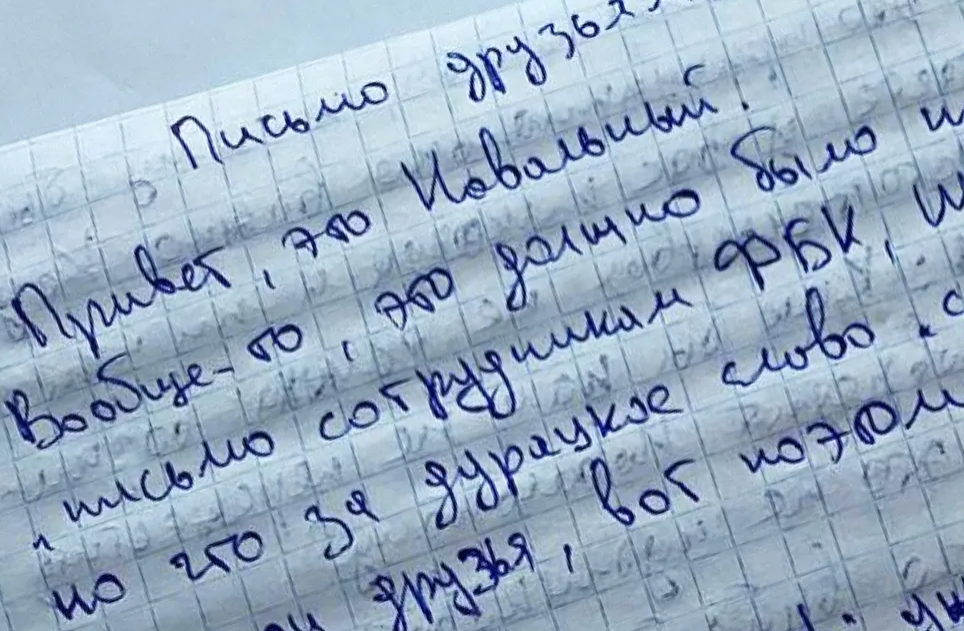 Письмо друзьям
Привет, это Навальный.
Вообще-то, это должно было
"письмо сотрудникам ФБК,
но что за дурацкое слово "с
друзья, вот поэтом